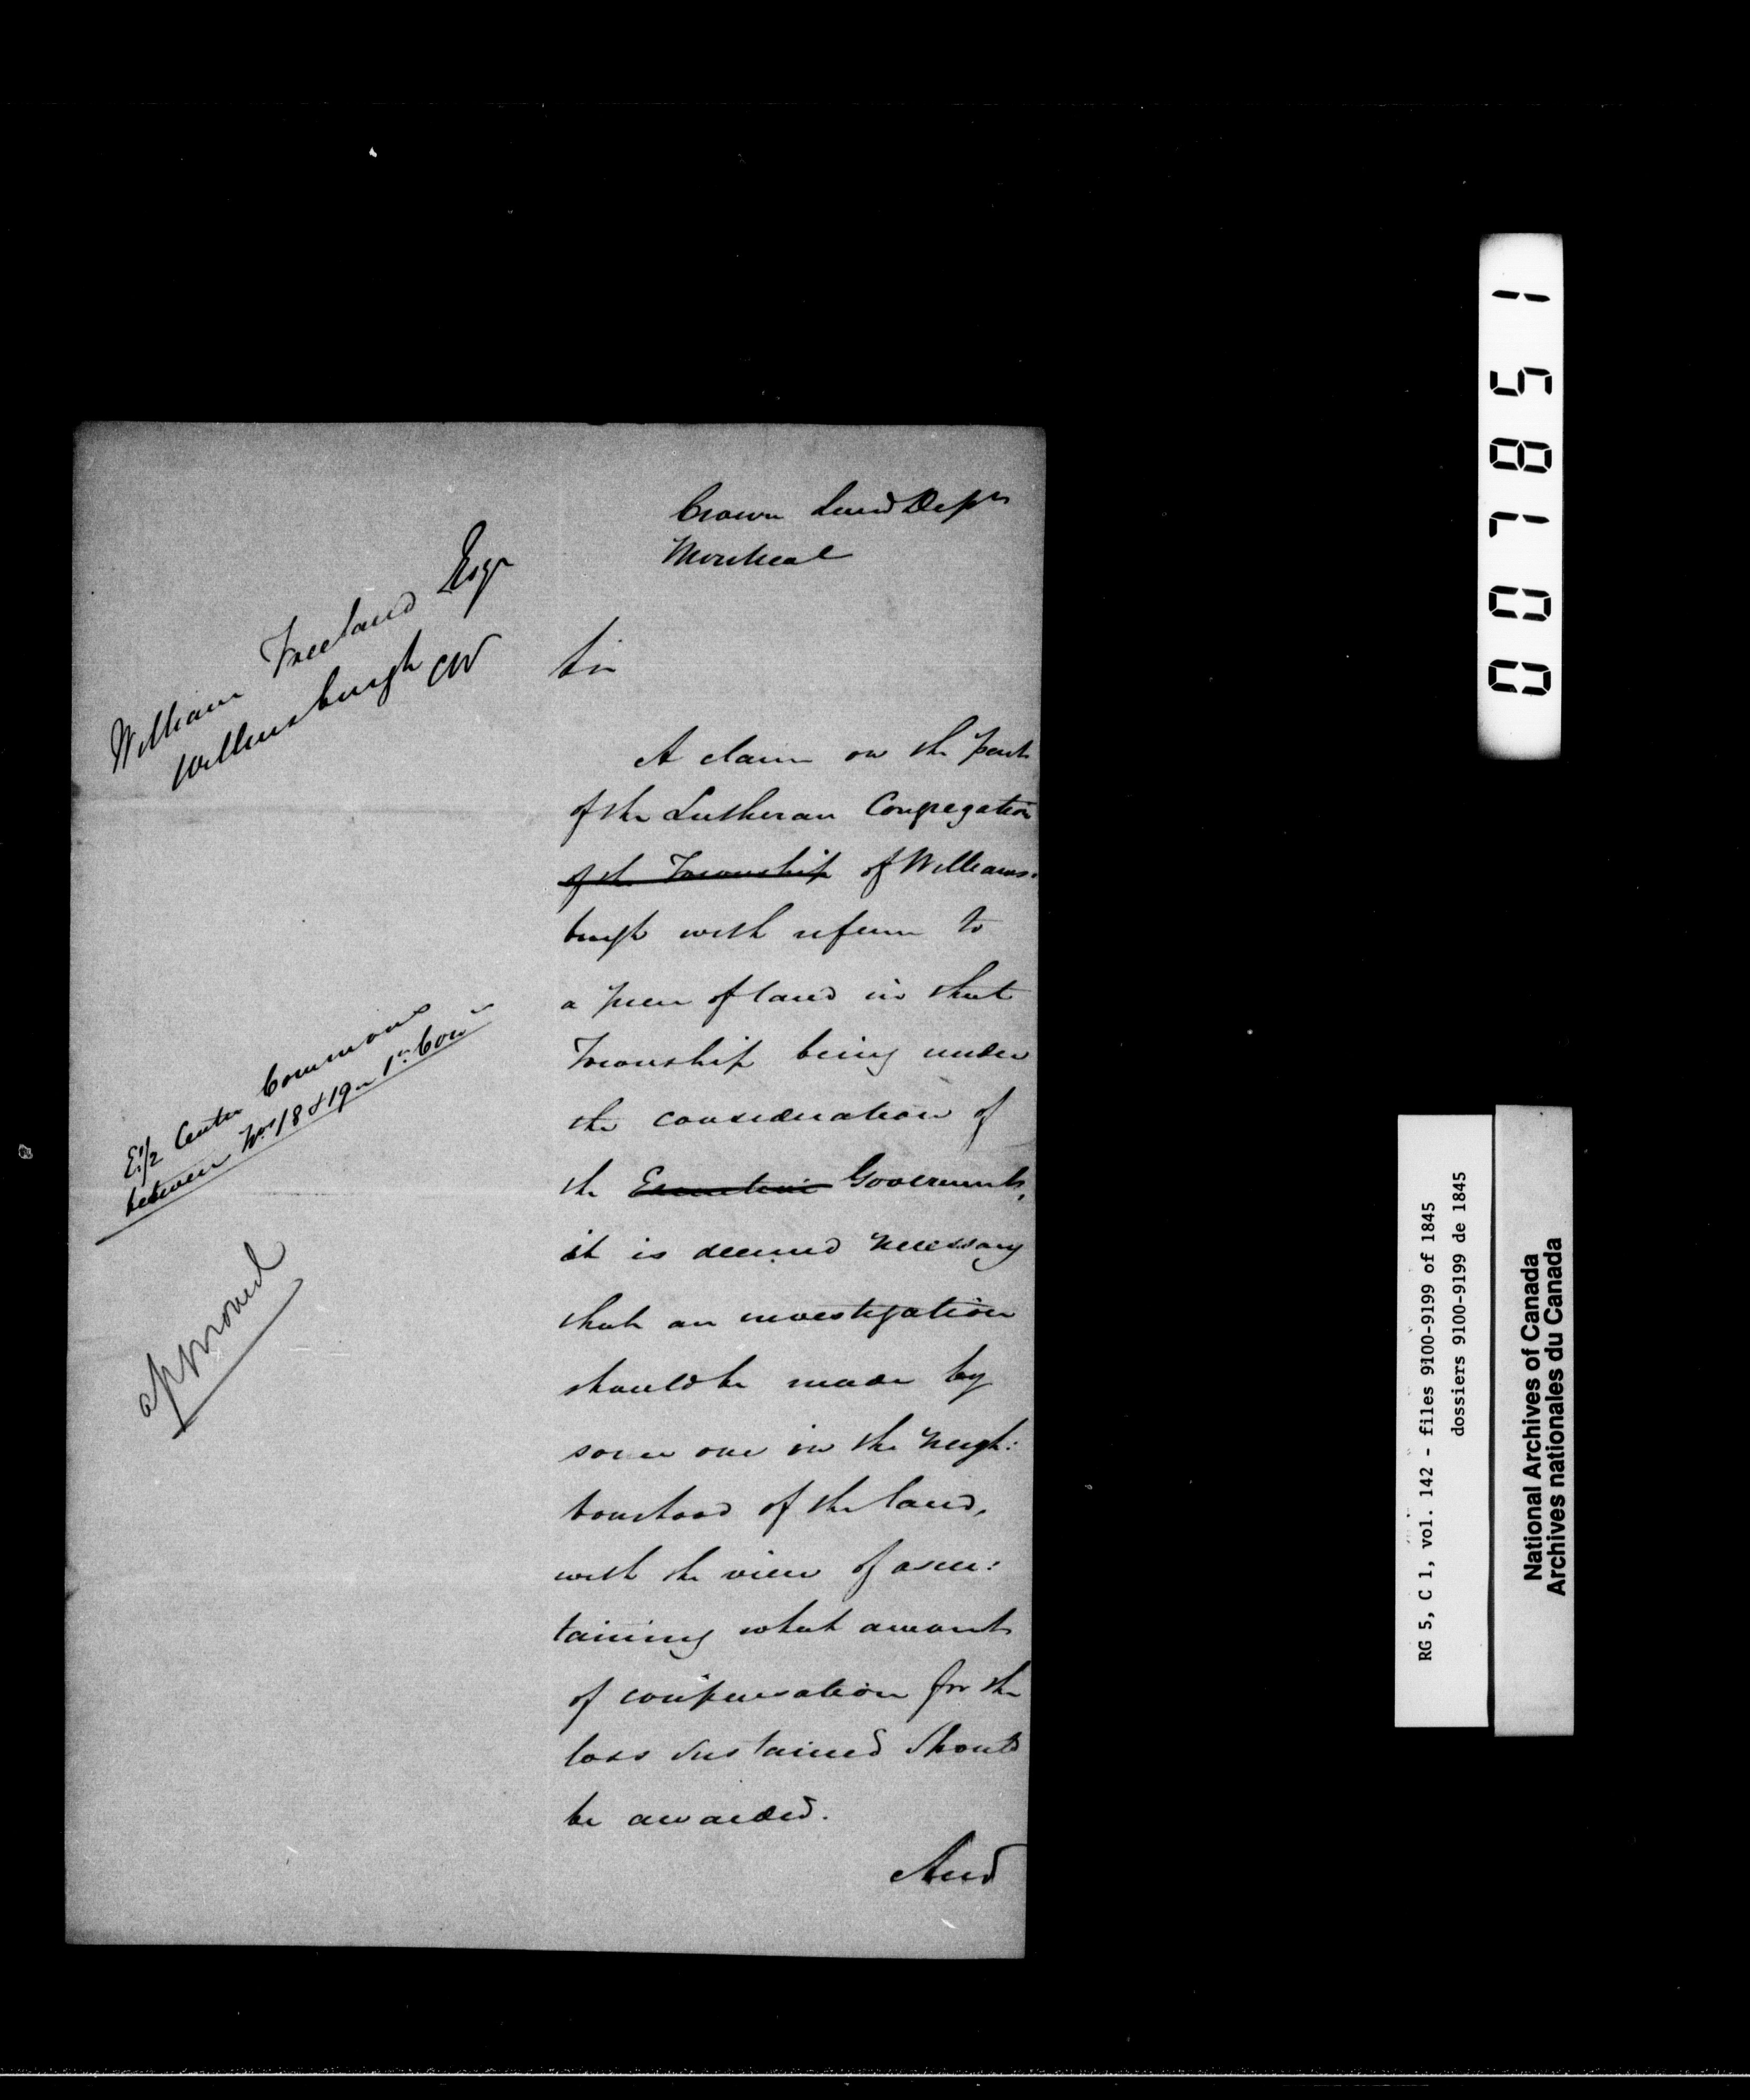 Crown Land Dept
Montreal
William Freeland Esqr
Williamsburgh CW
Sir
A claim on the part
of the Lutheran Congregation
of the Township of Williams:
burgh with reference to
a piece of land in that
Township being under
the consideration of
the Executive Government,
it is deemed necessary
that an investigation
should be made by
some one in the neigh:
bourhood of the land,
with the view of ascer:
taining what amount
of compensation for the
loss sustained should
be awarded.
And
E1/2 Center Commons
between Nos 18 & 19 in 1st Con
approved
007851
RG 5, C 1, vol. 142 - files 9100-9199 of 1845
dossiers 9100-9199 de 1845
National Archives of Canada
Archives nationales du Canada